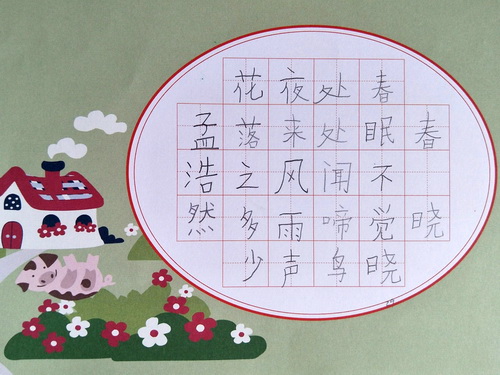 春晓
春眠不觉晓
处处闻啼鸟
夜来风雨声
花落之多少
孟浩然